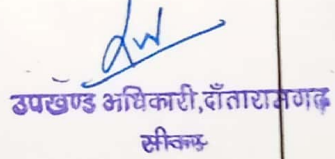 उपखण्ड अधिकारी,दाँतारामगढ
सीकर